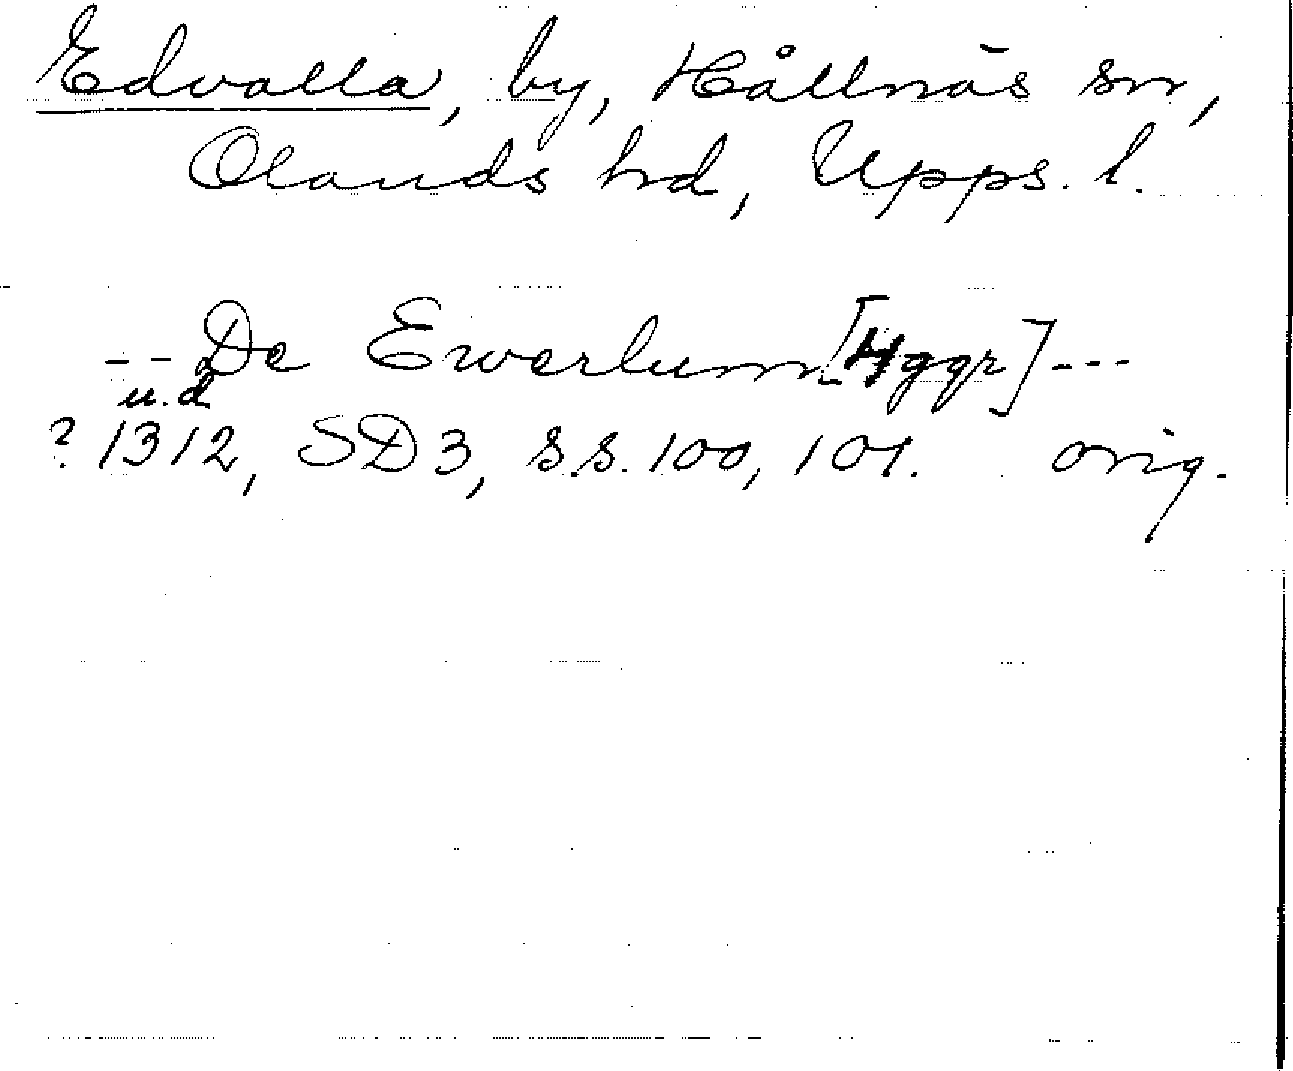 Edvalla, by, Hållnäs sn,
Olands hd, Upps. l.
-- De Ewerlum [4 ggr] ---
u.d
? 1312, SD 3, s.s. 100, 101. orig.